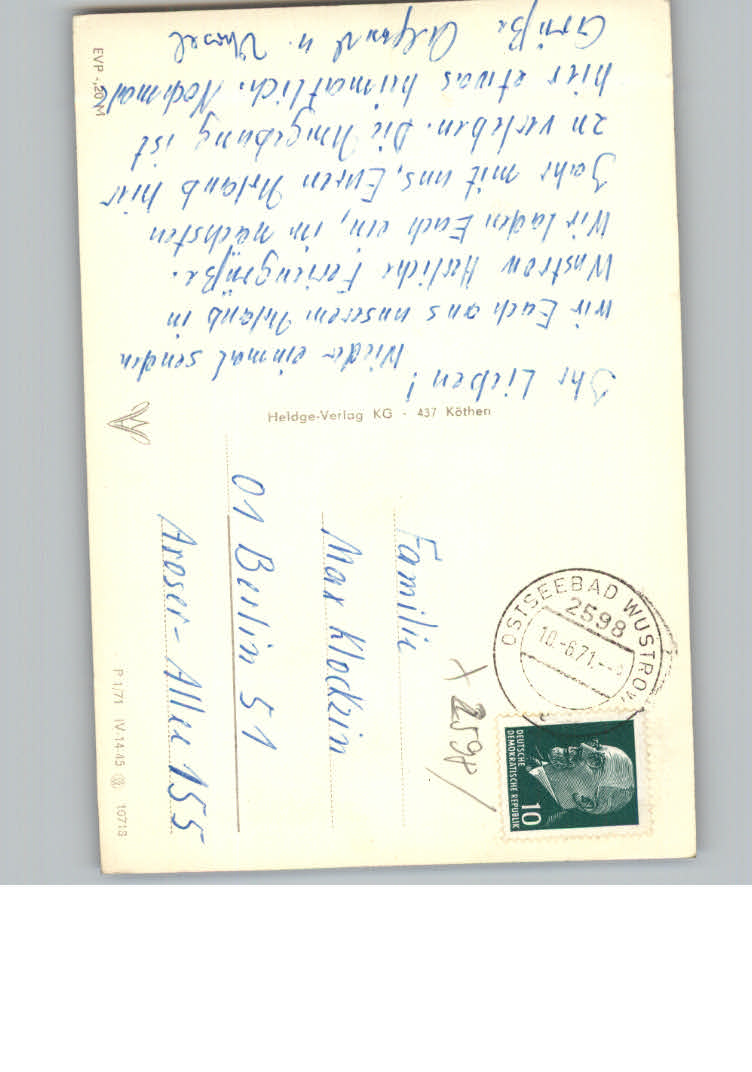 Ihr Lieben!
Wieder einmal senden
wir Euch aus unserem Urlaub in
Wustrow Herliche Feriengrüße.
Wir laden Euch ein, im nächsten
Jahr mit uns, Euren Urlaub hier
zu verleben. Die Umgebung ist
hier etwas heimatlich. Nochmals
Grüße u.
EVP -,20 M
Heldge-Verlag KG - 437 Köthen
Familie
Max Klockzin
01 Berlin 51
Aroser-Allee 155
P 1/71 IV-14-45 10718
OSTSEEBAD WUSTROW
2598
10.-6.71.--
x 2598/
DEUTSCHE
DEMOKRATISCHE REPUBLIK
10